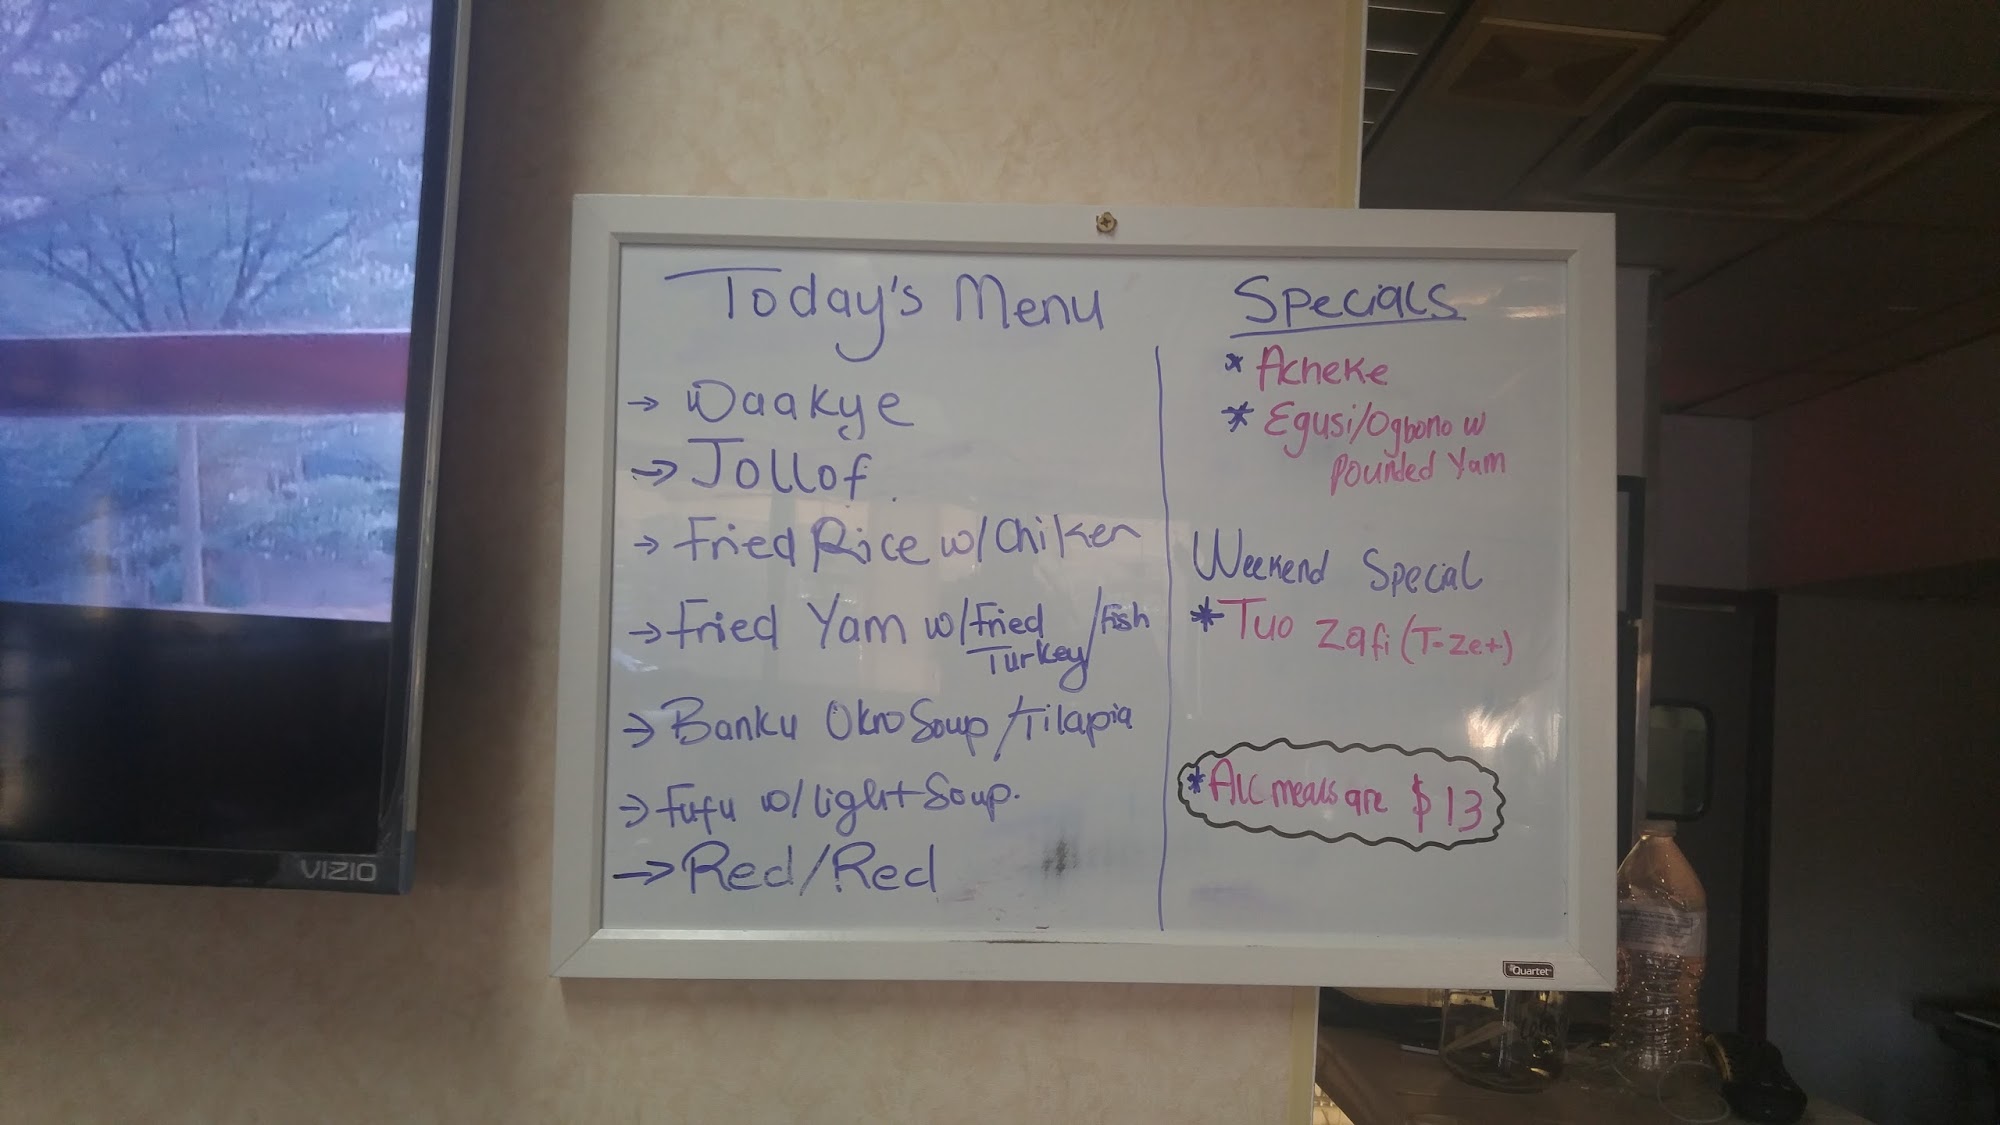 Today's Menu
→ Waakye
→ Jollof.
→ Fried Rice w/ Chiken
→ Fried Yam w/ Fried / Fish
Turkey
→ Banku Okro Soup / Tilapia
→ Fufu w/ Light Soup.
→ Red/Red
Specials
* Acheke
* Egusi/Ogbono w
Pounded Yam
Weekend Special
* Tuo Zafi (T-Zet)
* All meals are $13
VIZIO
Quartet